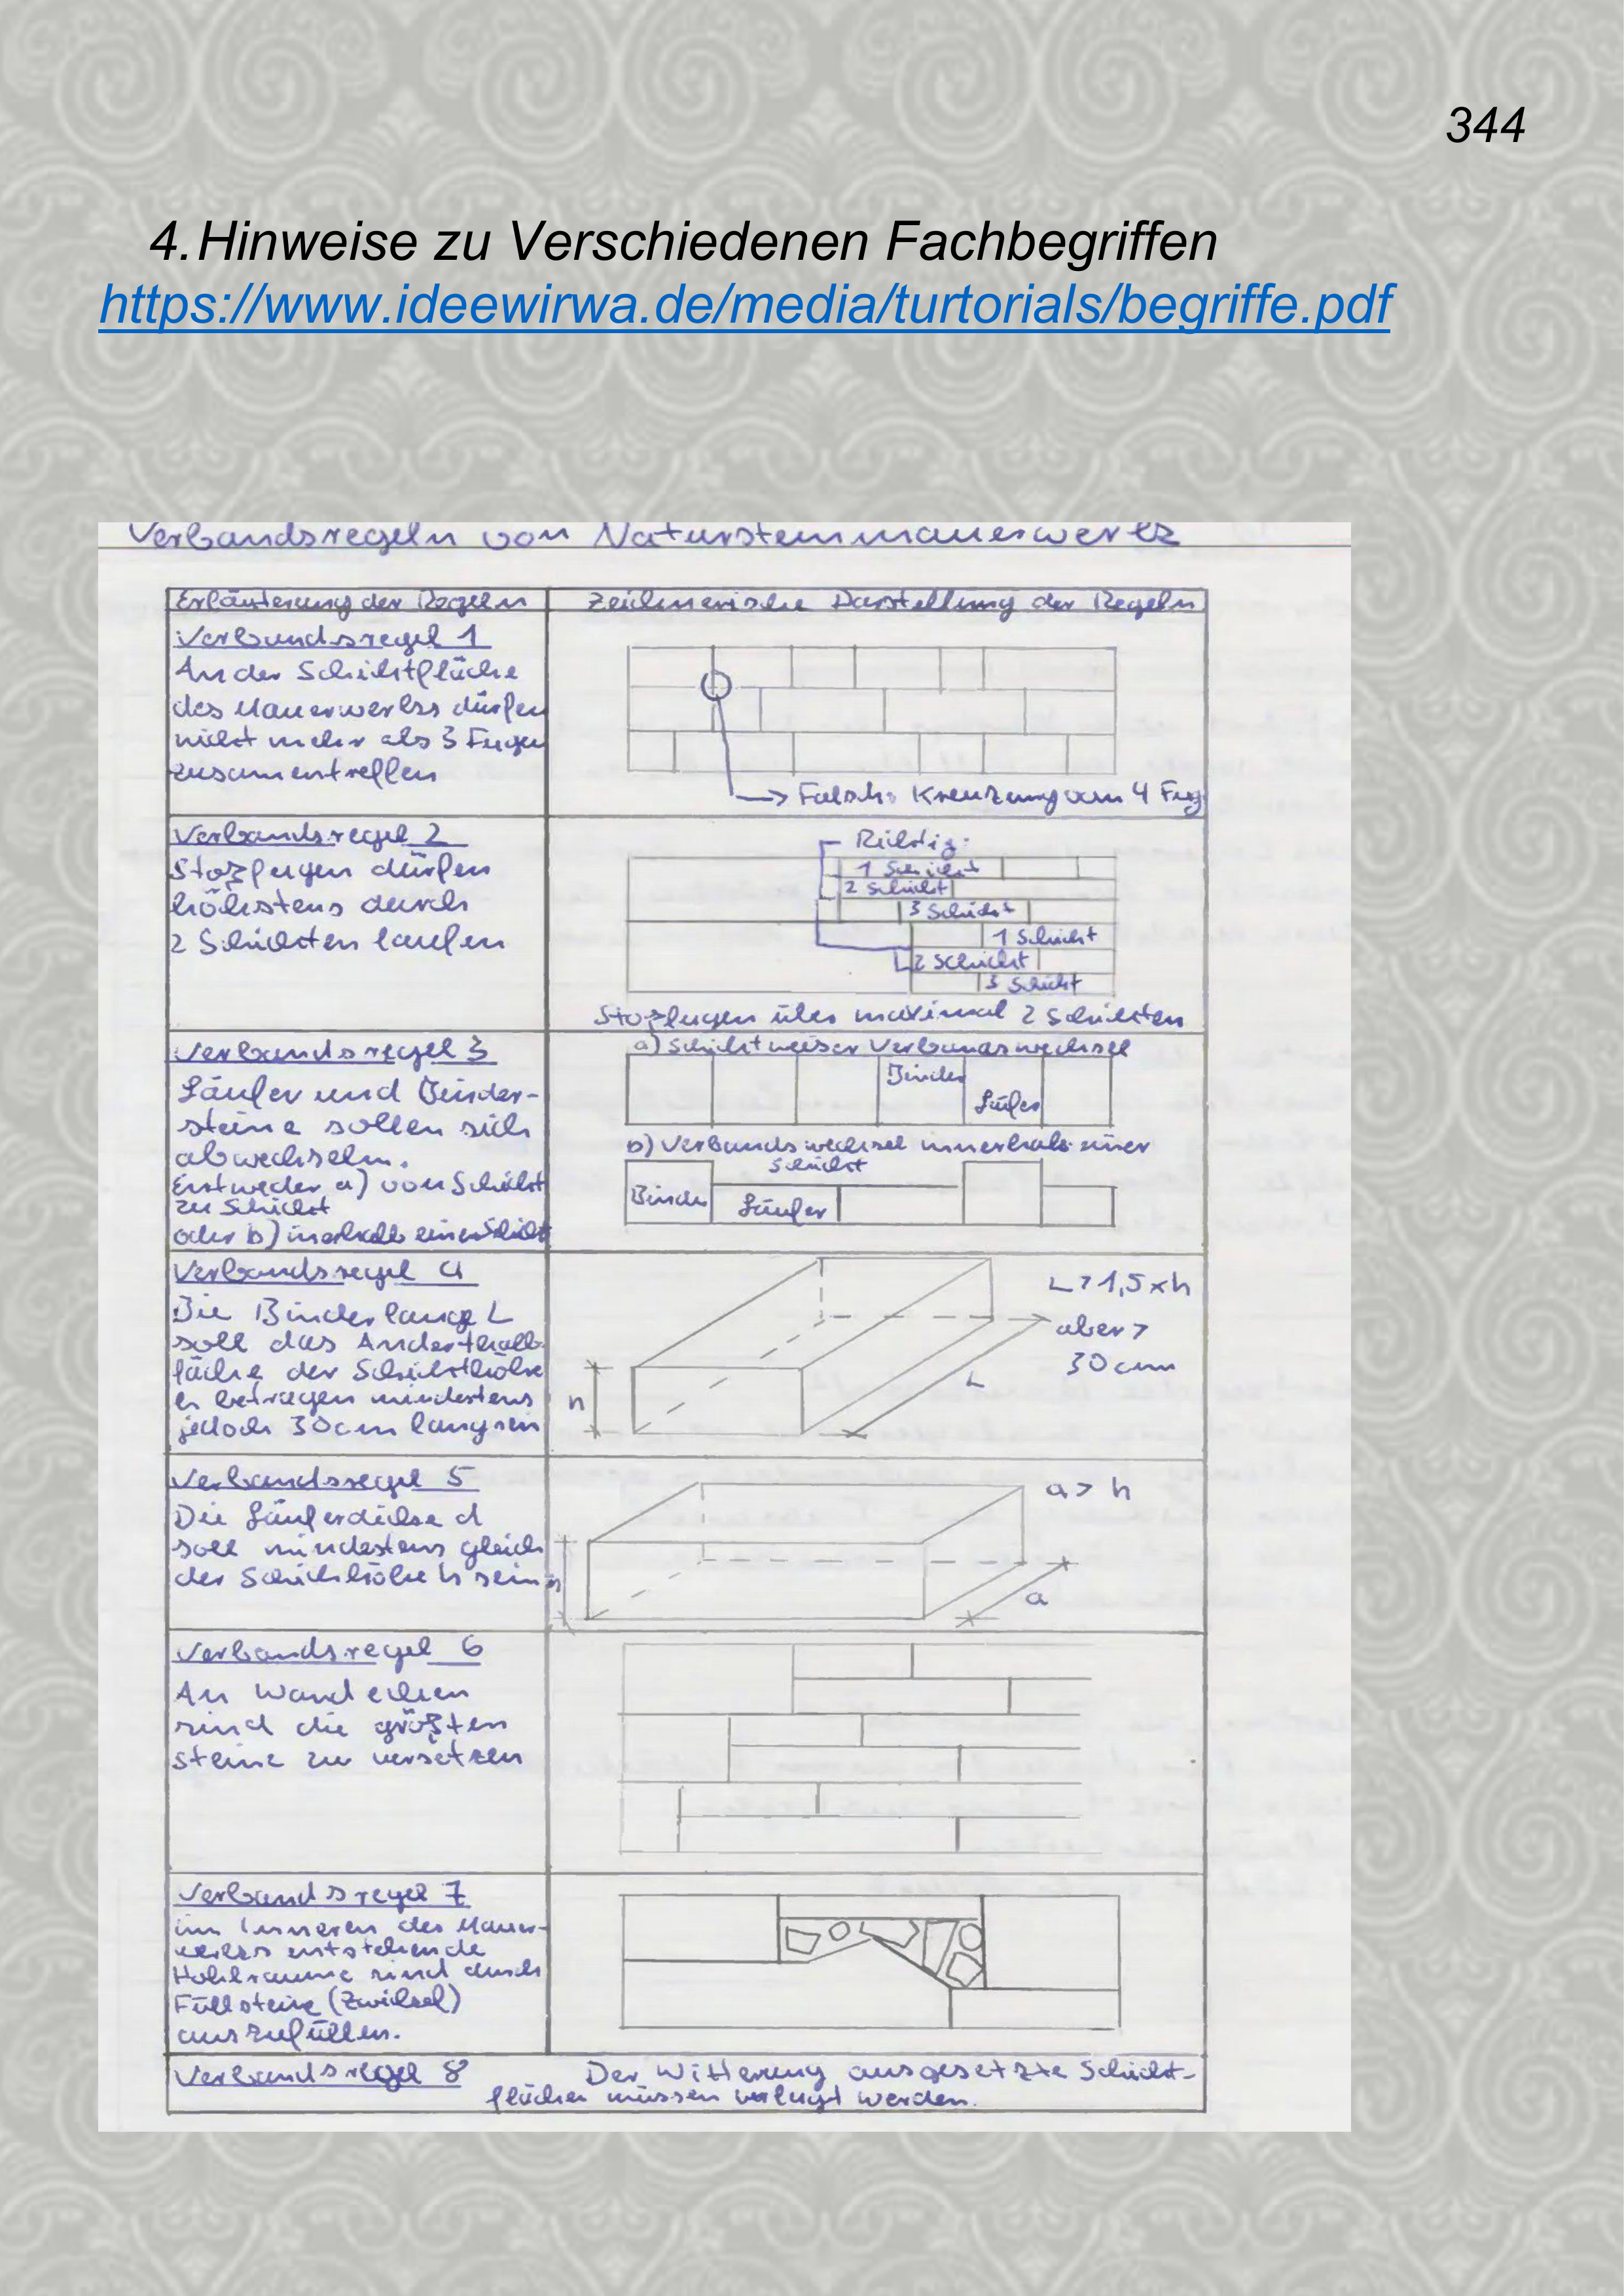 344
4. Hinweise zu Verschiedenen Fachbegriffen
https://www.ideewirwa.de/media/turtorials/begriffe.pdf
Verbandsregeln von Natursteinmauerwerk
Erläuterung der Regeln
Zeichnerische Darstellung der Regeln
Verbandsregel 1
An der Schichtfläche
des Mauerwerks dürfen
nicht mehr als 3 Fugen
zusamentreffen
Falsch: Kreuzung von 4 Fug
Verbandsregel 2
Stoßfugen dürfen
höchstens durch
2 Schichten laufen
Richtig:
1 Schicht
2 Schicht
3 Schicht
1 Schicht
2 Schicht
3 Schicht
Stoßfugen über maximal 2 Schichten
Verbandsregel 3
Läufer und Binder-
steine sollen sich
abwechseln.
Entweder a) von Schicht
zu Schicht
oder b) inerhalb einer Schicht
a) Schichtweiser Verbandswechsel
Binder
Läufer
b) Verbandswechsel innerhalb einer
Schicht
Binder
Läufer
Verbandsregel 4
Die Binderlänge L
soll das Anderthalb-
fache der Schichthöhe
h betragen mindestens
jedoch 30cm lang sein
h
L
L > 1,5 x h
aber >
30 cm
Verbandsregel 5
Die Läuferdicke d
soll mindestens gleich
der Schichthöhe h sein
h
a
a > h
Verbandsregel 6
An Wandecken
sind die größten
Steine zu versetzen
Verbandsregel 7
im Inneren des Mauer-
werks entstehende
Hohlräume sind durch
Füllsteine (Zwickel)
auszufüllen.
Verbandsregel 8
Der Witterung ausgesetzte Schicht-
flächen müssen verfugt werden.